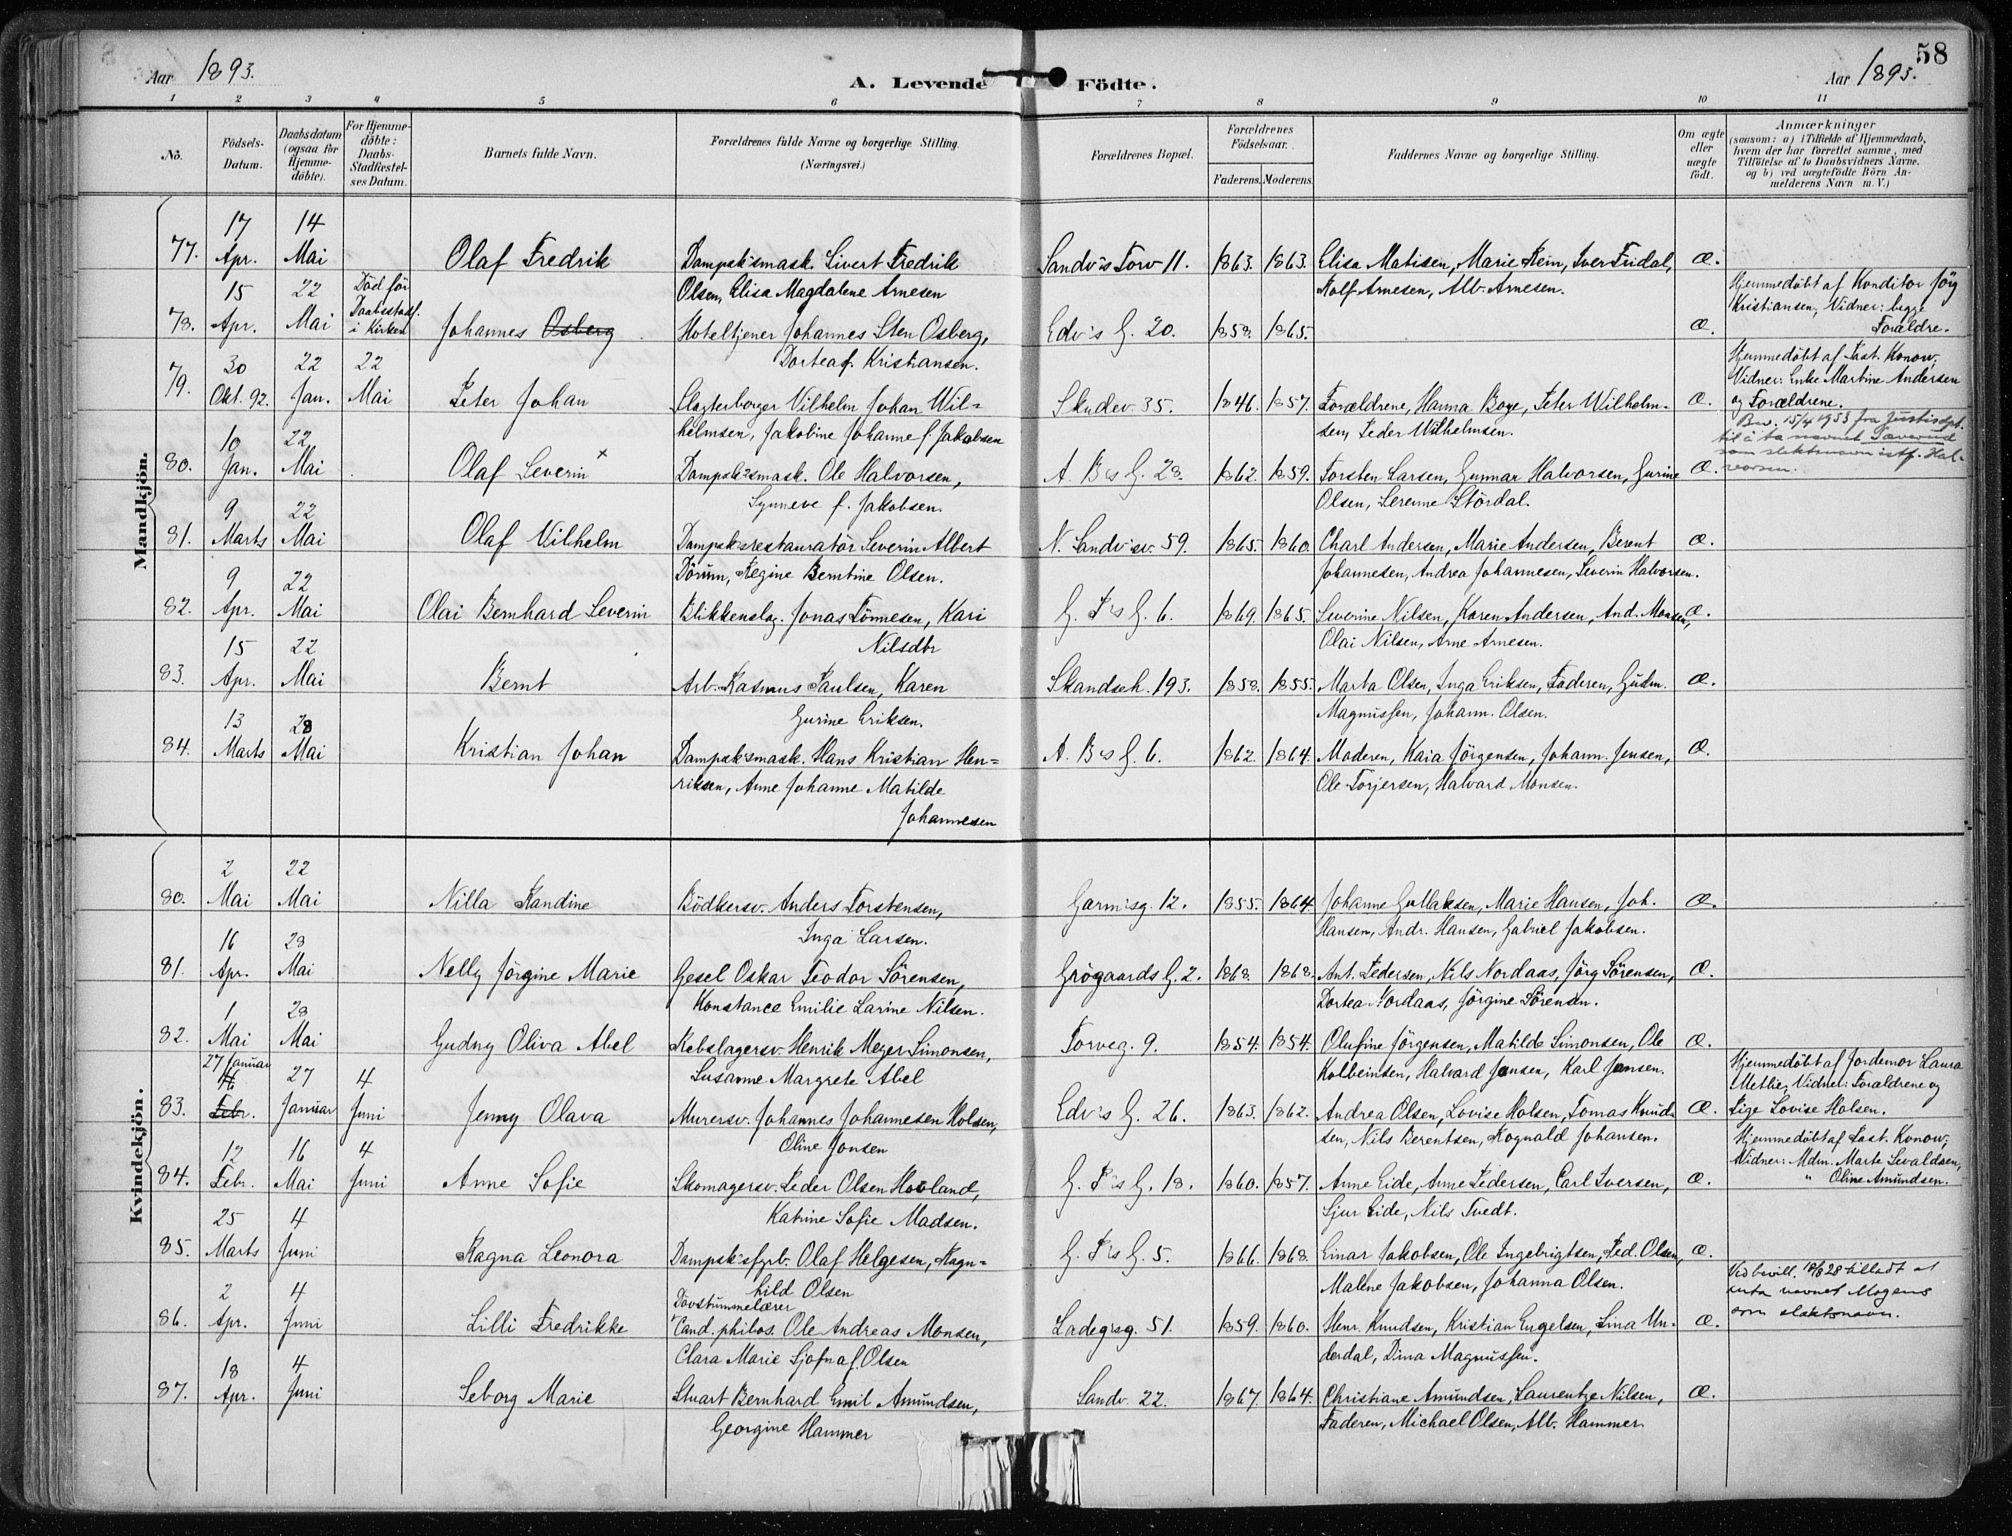 58
Aar 1893. A. Levende Födte. Aar 1893.
1 2 3 4 5 6 7 8 9 10 11
No.
Födsels-Datum.
Daabsdatum (ogsaa for Hjemme-döbte).
For Hjemme-döbte: Daabs-Stadfæstel-ses Datum.
Barnets fulde Navn.
Forældrenes fulde Navne og borgerlige Stilling. (Næringsvei.)
Forældrenes Bopæl.
Forældrenes Födselsaar.
Faderens. Moderens.
Faddernes Navne og borgerlige Stilling.
Om ægte eller uægte födt.
Anmærkninger
(saasom: a) i Tilfælde af Hjemmedaab, hvem der har forrettet samme, med Tilföielse af to Daabsvidners Navne. og b) ved uægtefödte Börn An-melderens Navn m. V.)
Mandkjön.
77. 17 Apr. 14 Mai Olaf Fredrik Dampsk.smask. Sivert Fredrik Sandv's Torv 11. 1863. 1863. Elisa Matisen, Marie Rein, Iver Fridal, Æ.
Olsen, Elisa Magdalene Arnesen Rolf Arnesen, Alb. Arnesen.
78. 15 Apr. 22 Mai Död før Daabsstadf. i Kirken Johannes Osberg Hoteltjener Johannes Sten Osberg, Edv's G. 20. 1858. 1865. Æ. Hjemmedöbt af Konditor Jörg Kristiansen, Vidner: begge Forældre.
Dorthea f. Kristiansen.
79. 30 Okt. 92. 22 Jan. 22 Mai Peter Johan Slagterborger Vilhelm Johan Wil= Skudev. 35. 1846. 1857. Forældrene, Hanna Boye, Peter Wilhelm- Æ. Hjemmedöbt af Past. Konow. Vidner: Enke Martine Andersen og Forældrene.
helmsen, Jakobine Johanne f. Jakobsen sen, Peder Wilhelmsen.
80. 10 Jan. 22 Mai Olaf Severin + Dampsk.smask. Ole Halvorsen, A. B's G. 28. 1862. 1859. Torsten Larsen, Gunnar Halvorsen, Gurine Æ. Bev. 15/4 1953 fra Justisdept. til å ta navnet som slektsnavn istf. Hal-vorsen.
Synneve f. Jakobsen. Olsen, Serenne Stördal.
81. 9 Marts 22 Mai Olaf Vilhelm Dampsk.srestauratör Severin Albert N. Sandv'sv. 59. 1865. 1860. Charl Andersen, Marie Andersen, Berent Æ.
Dörum, Regine Berntine Olsen. Johannesen, Andrea Johannesen, Severin Halvorsen.
82. 9 Apr. 22 Mai Olai Bernhard Severin Blikkenslag. Jonas Tönnesen, Kari G. P's G. 6. 1869. 1865. Severine Nilsen, Karen Andersen, And. Monsen, Æ.
Nilsdtr Olai Nilsen, Arne Arnesen.
83. 15 Apr. 22 Mai Bernt Arb. Rasmus Paulsen, Karen Skandseh. 193. 1858. 1855. Marta Olsen, Inga Eriksen, Faderen, Gudm. Æ.
Gurine Eriksen. Magnussen, Johann. Olsen.
84. 13 Marts 28 Mai Kristian Johan Dampsk'smask. Hans Kristian Hen= A. B's G. 6. 1862. 1864. Moderen, Kaia Jörgensen, Johann. Jensen, Æ.
riksen, Anne Johanne Matilde Ole Torjersen, Halvard Monsen.
Johannesen
Kvindekjön.
80. 2 Mai 22 Mai Nilla Randine Bödkersv. Anders Torstensen, Garm'sg. 12. 1855. 1864. Johanne Gullaksen, Marie Hansen, Joh. Æ.
Inga Larsen. Hansen, Andr. Hansen, Gabriel Jakobsen.
81. 16 Apr. 28 Mai Nelly Jörgine Marie Gesel Oskar Teodor Sörensen, Grögaards G. 2. 1868. 1868. Ant. Pedersen, Nils Nordaas, Jörg Sörensen, Æ.
Konstance Emilie Larine Nilsen. Dortea Nordaas, Jörgine Sörensen.
82. 1 Mai 28 Mai Gudny Oliva Abel Rebslagersv. Henrik Meyer Simonsen, Torveg. 9. 1854. 1854. Olufine Jörgensen, Matilde Simonsen, Ole Æ.
Susanne Margrete Abel Kolbeinsen, Halvard Jansen, Karl Jansen.
83. 27 Januar Febr. 27 Januar 4 Juni Jenny Olava Murersv. Johannes Johannesen Holsen, Edv's G. 26. 1863. 1862. Andrea Olsen, Lovise Holsen, Tomas Knud- Æ. Hjemmedöbt af Jordemor Laura Metlie, Vidner: Forældrene og Pige Lovise Holsen.
Oline Jonsen sen, Nils Berentsen, Rognald Johansen.
84. 12 Febr. 16 Mai 4 Juni Anne Sofie Skomagersv. Peder Olsen Hovland, G. P's G. 18. 1860. 1857. Anne Eide, Anne Pedersen, Carl Iversen, Æ. Hjemmedöbt af Past. Konow, Vidner: Mdm. Marte Sevaldsen, " Oline Amundsen.
Katrine Sofie Madsen. Sjur Eide, Nils Tvedt.
85. 25 Marts 4 Juni Ragna Leonora Dampsk'sfyrb. Olaf Helgesen, Ragn= G. P's G. 5. 1866. 1868. Einar Jakobsen, Ole Ingebrigtsen, Ped. Olsen, Æ.
hild Olsen Malene Jakobsen, Johanna Olsen.
86. 2 Apr. 4 Juni Lilli Fredrikke Dövstummelærer Cand. philos. Ole Andreas Monsen, Ladegsg. 51. 1859. 1860. Henr. Knudsen, Kristian Engelsen, Lina Un- Æ. Ved bevill. 18/8 28 tilladt at anta navnet Mogens som slektsnavn.
Clara Marie Sjofna f. Olsen derdal, Dina Magnussen.
87. 18 Apr. 4 Juni Seborg Marie Stuart Bernhard Emil Amundsen, Sandv. 22. 1867. 1864. Christiane Amundsen, Laurentze Nilsen, Æ.
Georgine Hammer Faderen, Michael Olsen, Alb. Hammer.